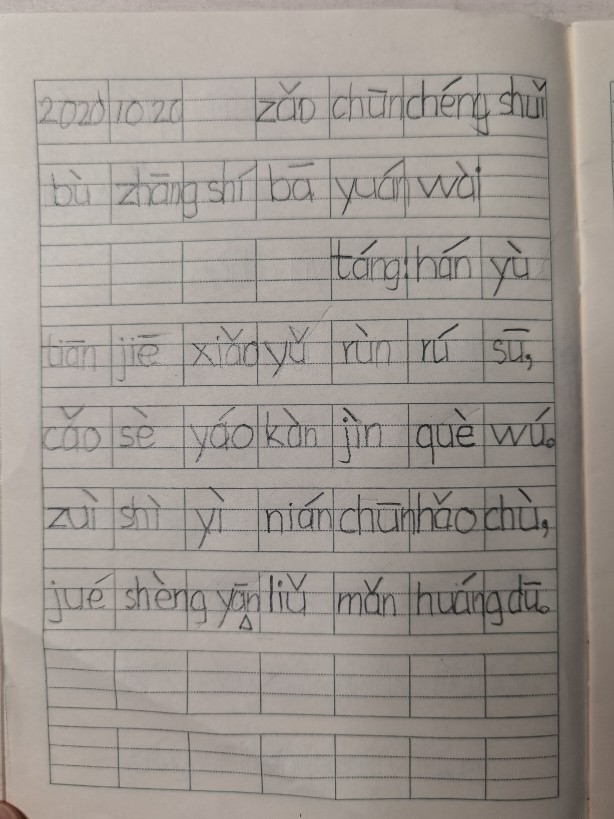 2020 10.20 zǎo chūn chéng shuǐ
bù zhāng shí bā yuán wài
táng: hán yù
tiān jiē xiǎo yǔ rùn rú sū,
cǎo sè yáo kàn jìn què wú。
zuì shì yì nián chūn hǎo chù,
jué shèng yān liǔ mǎn huáng dū。